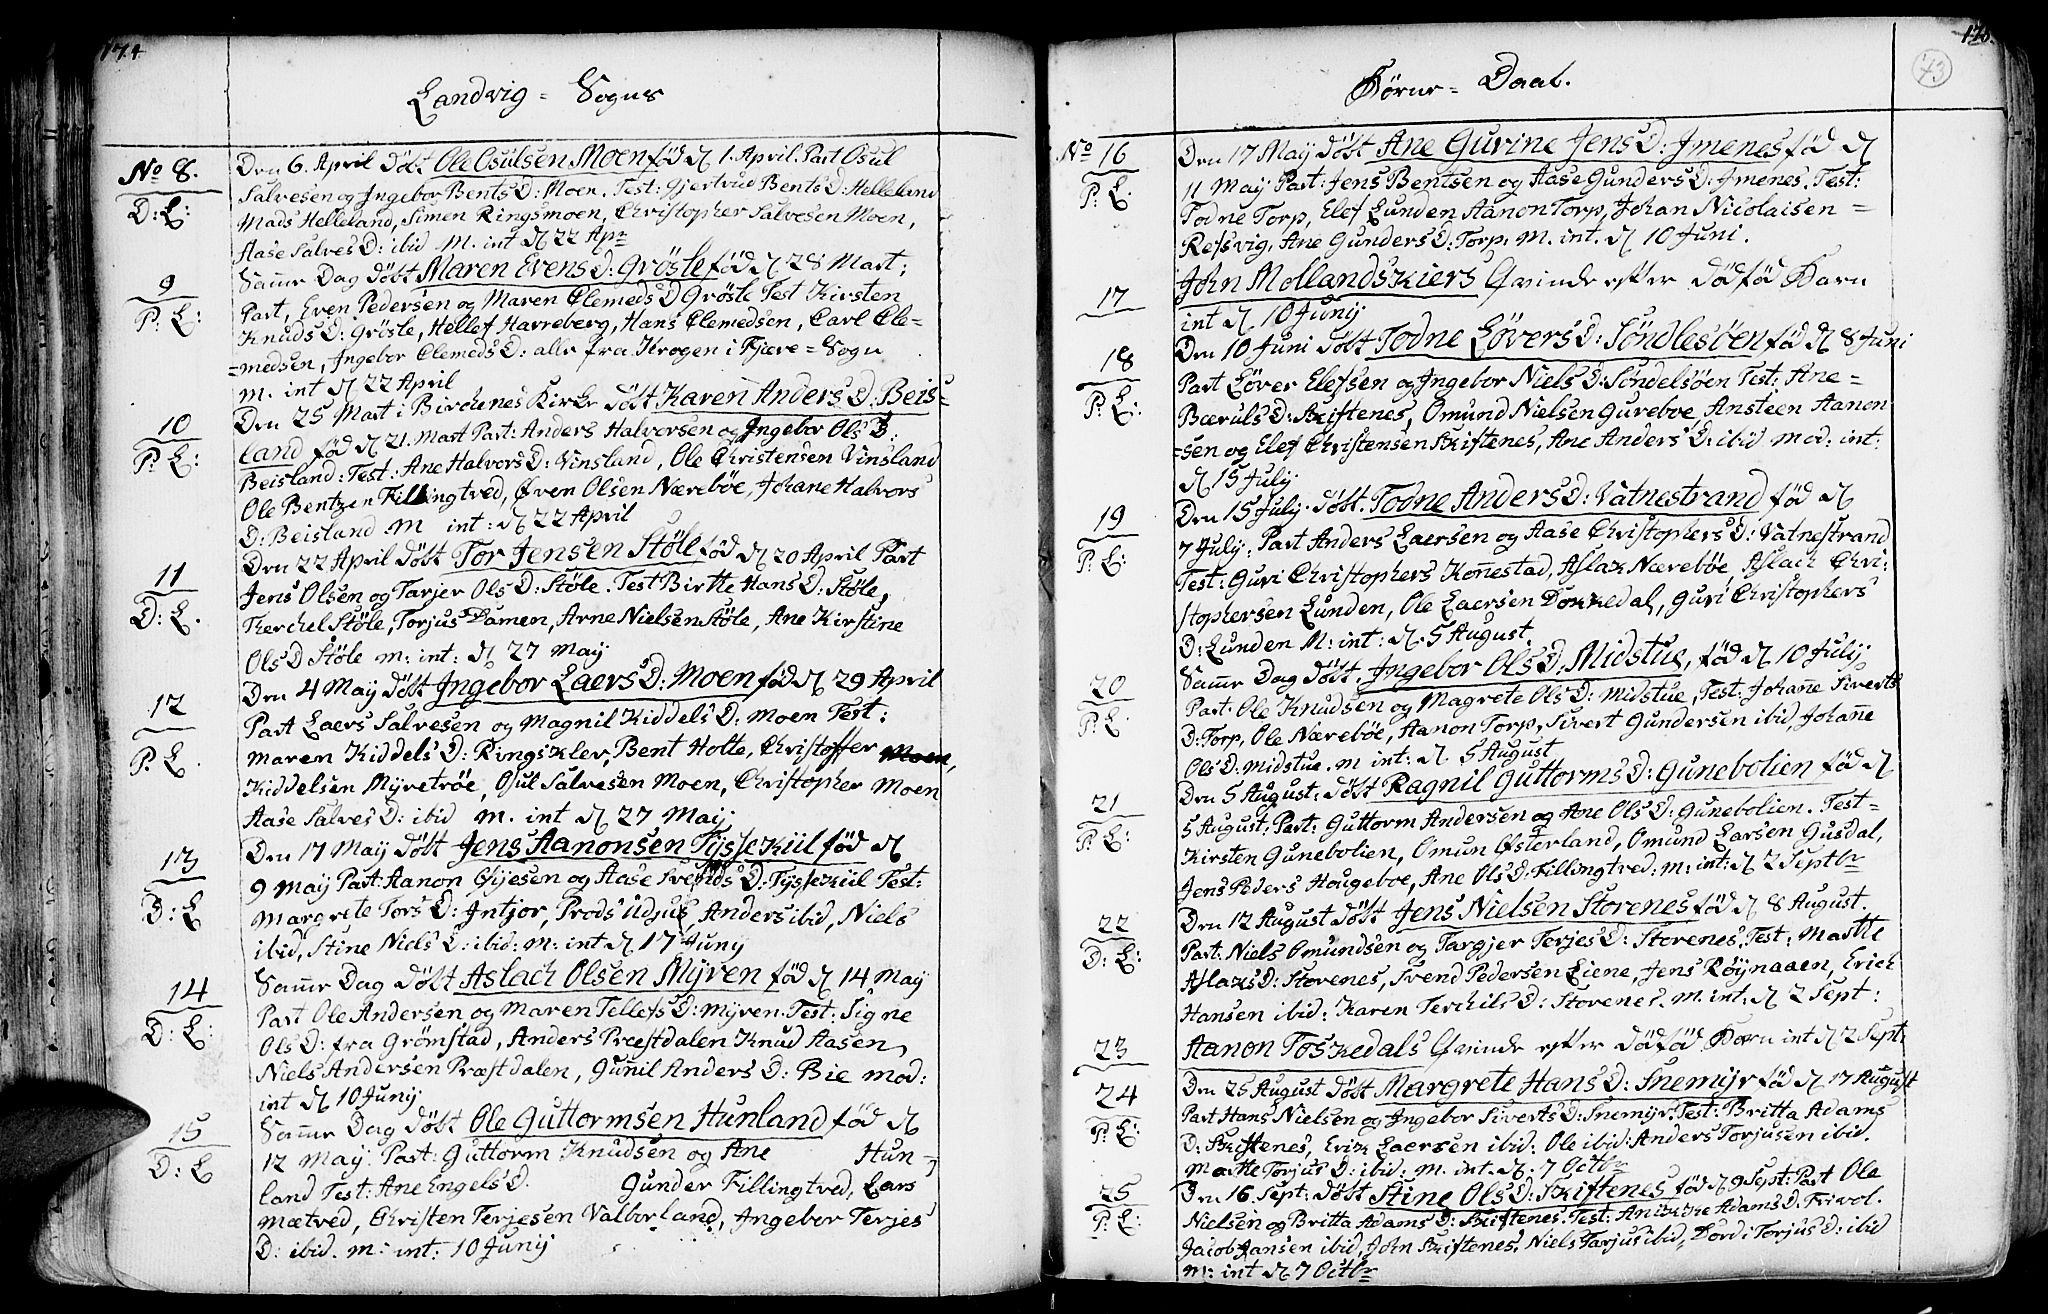 174
Landvig = Sogns
No 8.
D: L:
Den 6. April döbt Ole Osulsen Moen föd d 1. April. Part Osul
Salvesen og Ingebor Bents D: Moen. Test: Gjertrud Bents D: Helleland
Mads Helleland, Simen Ringsmoen, Christopher Salvesen Moen,
Aase Salves D: ibid M. int d 22 Apr
9
P: L:
Samme Dag döbt Maren Evens D: Gröste föd d 28 Mart;
Part, Even Pedersen og Maren Clemeds D Gröste Test Kirsten
Knuds D: Gröste, Hellef Harreberg, Hans Clemedsen, Carl Cle=
=medsen, Ingebor Clemeds D: alle fra Krogen i Fjære = Sogn
m. int d 22 April
10
P: L:
Den 25 Mart i Birchenes Kirke döbt Karen Anders D: Beis=
land föd d 21. Mart Part: Anders Halvorsen og Ingebor Ols D:
Beisland: Test: Ane Halvors D: Vinsland, Ole Christensen Vinsland
Ole Bentzen Fillingtved, Even Olsen Næreböe, Johane Halvors
D: Beisland M int: d 22 April
11
D: L.
Den 22 April döbt Tor Jensen Stöle föd d 20 April Part
Jens Olsen og Tarjer Ols D: Stöle. Test Birthe Hans D: Stöle,
Kerchel Stöle, Torjus Damen, Arne Nielsen Stöle, Ane Kirstine
Ols D Stöle m: int: d 27 May
12
P: L.
Den 4 May döbt Ingebor Laers D: Moen föd d 29 April
Part Laers Salvesen og Magnil Kiddels D: Moen Test:
Maren Kiddels D: Ringsklev, Bent Holte, Christoffer Moen,
Kiddelsen Myretröe, Osul Salvesen Moen, Christopher Moen
Aase Salves D: ibid m. int d 27 May
13
D: L
Den 17 May döbt Jens Aanonsen Tysseküil föd d
9 May Part: Aanon Gijesen og Aase Svends D: Tysseküil Test:
Margrete Tors D: Intjor, Prods Udjus, Anders ibid, Niels
ibid, Stine Niels D: ibid: m: int d 17 Juny
14
D: L:
Samme Dag döbt Aslach Olsen Myren föd d 14 May
Part Ole Andersen og Maren Tellefs D: Myren Test: Signe
Ols D: fra Grömstad, Anders Præstdalen Knud Aasen,
Niels Andersen Præstdalen, Gunil Anders D: Bie mod:
int d 10 Juny
15
D: L
Samme Dag döbt Ole Guttormsen Hunland föd d
12 May. Part: Guttorm Knudsen og Ane Hun=
land Test: Ane Engels D. Gunder Fillingtved, Lars
Mætved, Christen Terjesen Valborland, Ingebor Terjes
D: ibid. m: int: 10 Juny
175.
73
Börne = Daab.
No 16
P: L:
Den 17 May döbt Ane Gurine Jens D: Imenes föd d
11 May Part: Jens Bentsen og Aase Gunders D: Imenes. Test:
Todne Torp, Elef Lunden Aanon Torp, Johan Nicolaisen =
Refsvig, Ane Gunders D: Torp: m. int. d 10 Juni.
17
John Mollandskiers Qvinde efter dödföd Barn
int d 10 Junij
18
P: L:
Den 10 Juni döbt Todne Lövers D: Söndlesöen föd d 8 Juni
Part Löver Elefsen og Ingebor Niels D: Söndelsöen Test: Ane=
Bæruls D: Skiftenes, Omund Nielsen Gureboe Ansteen Aanon
=sen og Elef Christensen Skiftenes, Ane Anders D: ibid mod: int:
d 15 July
19
P: L:
Den 15 July döbt. Todne Anders D: Vatnestrand föd d
7 July. Part Anders Laersen og Aase Christophers D: Vatnestrand
Test: Guri Christophers Konnestad, Aslak Nærebøe Aslach Chri:
stophersen Lunden, Ole Laersen Dokkedal, Guri Christophers
D: Lunden M: int: d. 5 August.
20
P: L:
Samme Dag döbt. Ingebor Ols D. Midstue, föd d 10 July
Part: Ole Knudsen og Magrete Ols D: Midstue, Test: Johanne Siverts
D: Torp, Ole Nærebøe, Aanon Torp, Sivert Gundersen ibid, Johanne
Ols D: Midstue. m int: d 5 August
21
P: L:
Den 5 August: döbt Ragnil Guttorms D: Gunebolien föd d
5 August: Part: Guttorm Andersen og Ane Ols D: Gunebolien. Test=
Kirsten Gunebolien, Omun Østerland, Omund Larsen Gusdal,
Jens Peders Hougeboe, Ane Ols D: Fillingtved: m: int: d 2 Septbr
22
D: L:
Den 12 August döbt Jens Nielsen Storenes föd d 8 August.
Part: Niels Omundsen og Targjer Terjes D: Storenes. Test: Marthe
Aslaks D: Storenes, Svend Pedersen Liene, Jens Röynaaen, Erich
Hansen ibid: Karen Terchils D: Storenes. m. int: d 2 Sept:
23
Aanon Toskedals Qvinde efter dödföd Barn int d 2 Sept:
24
P: L:
Den 25 August döbt Margrete Hans D: Snemyr föd d 17 August
Part Hans Nielsen og Ingebor Siverts D: Snemyr. Test: Britta Adams
D: Skiftenes, Erik Laersen ibid: Ole ibid: Anders Torjusen ibid.
Marthe Torjus D: ibid: m. int. d. 7 Octbr
25
P: L:
Den 16. Sept: döbt Stine Ols D: Skiftenes föd d 9 Sept: Part Ole
Nielsen og Britta Adams D: Skiftenes. Test: Anikke Adams D: Frivol.
Jacob Jansen ibid, John Skiftenes, Niels Tarjus ibid, Dordi Torjus D: ibid
m: int d 7 Octbr